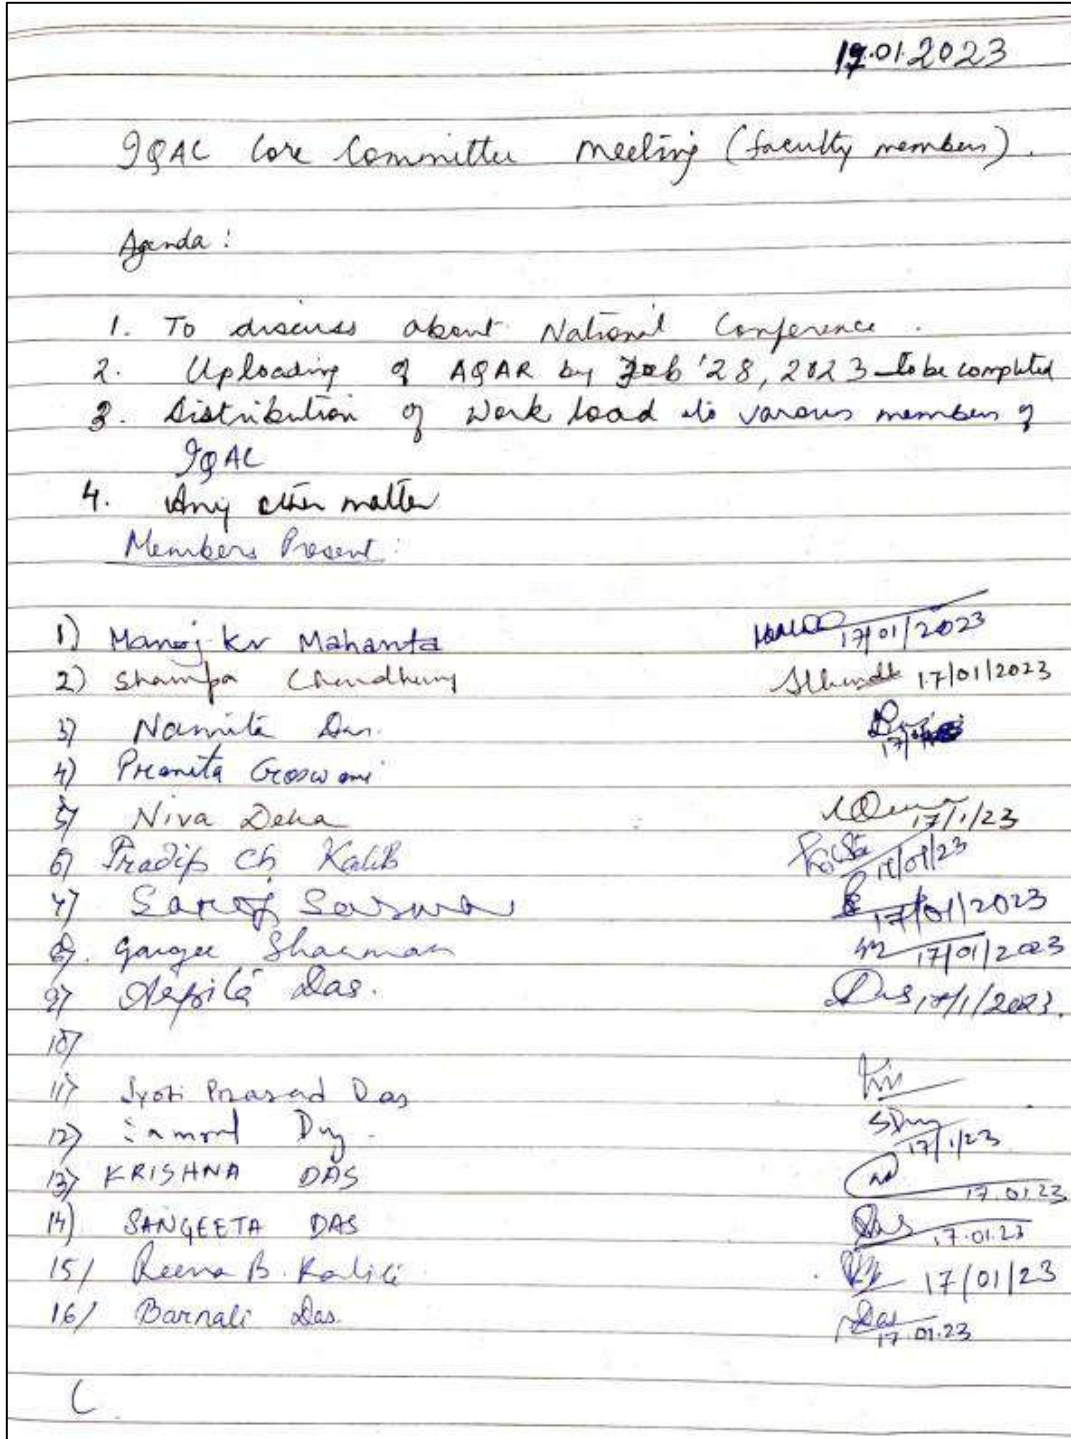 17.01.2023
IQAC Core Committee Meeting (faculty members).
Agenda:
1. To discuss about National Conference.
2. Uploading of AQAR by Feb '28, 2023 to be completed
3. Distribution of Work load to varous members of
IQAC
4. Any other matter
Members Present:
1) Manoj Kr Mahanta 17/01/2023
2) Shampa Choudhury 17/01/2023
3) Namita Das.
4) Pranita Goswami
5) Niva Deka 17/1/23
6) Pradip Ch Kalita 17/01/23
7) Saroj 17/01/2023
8). Gargee Sharman 17/01/2023
9) Arpita Das. Das 17/1/2023.
10)
11) Jyoti Prasad Das
12) 17/1/23
13) KRISHNA DAS 17.01.23
14) SANGEETA DAS Das 17.01.23
15/ Reena B. Kalita 17/01/23
16/ Barnali Das. Das 17.01.23